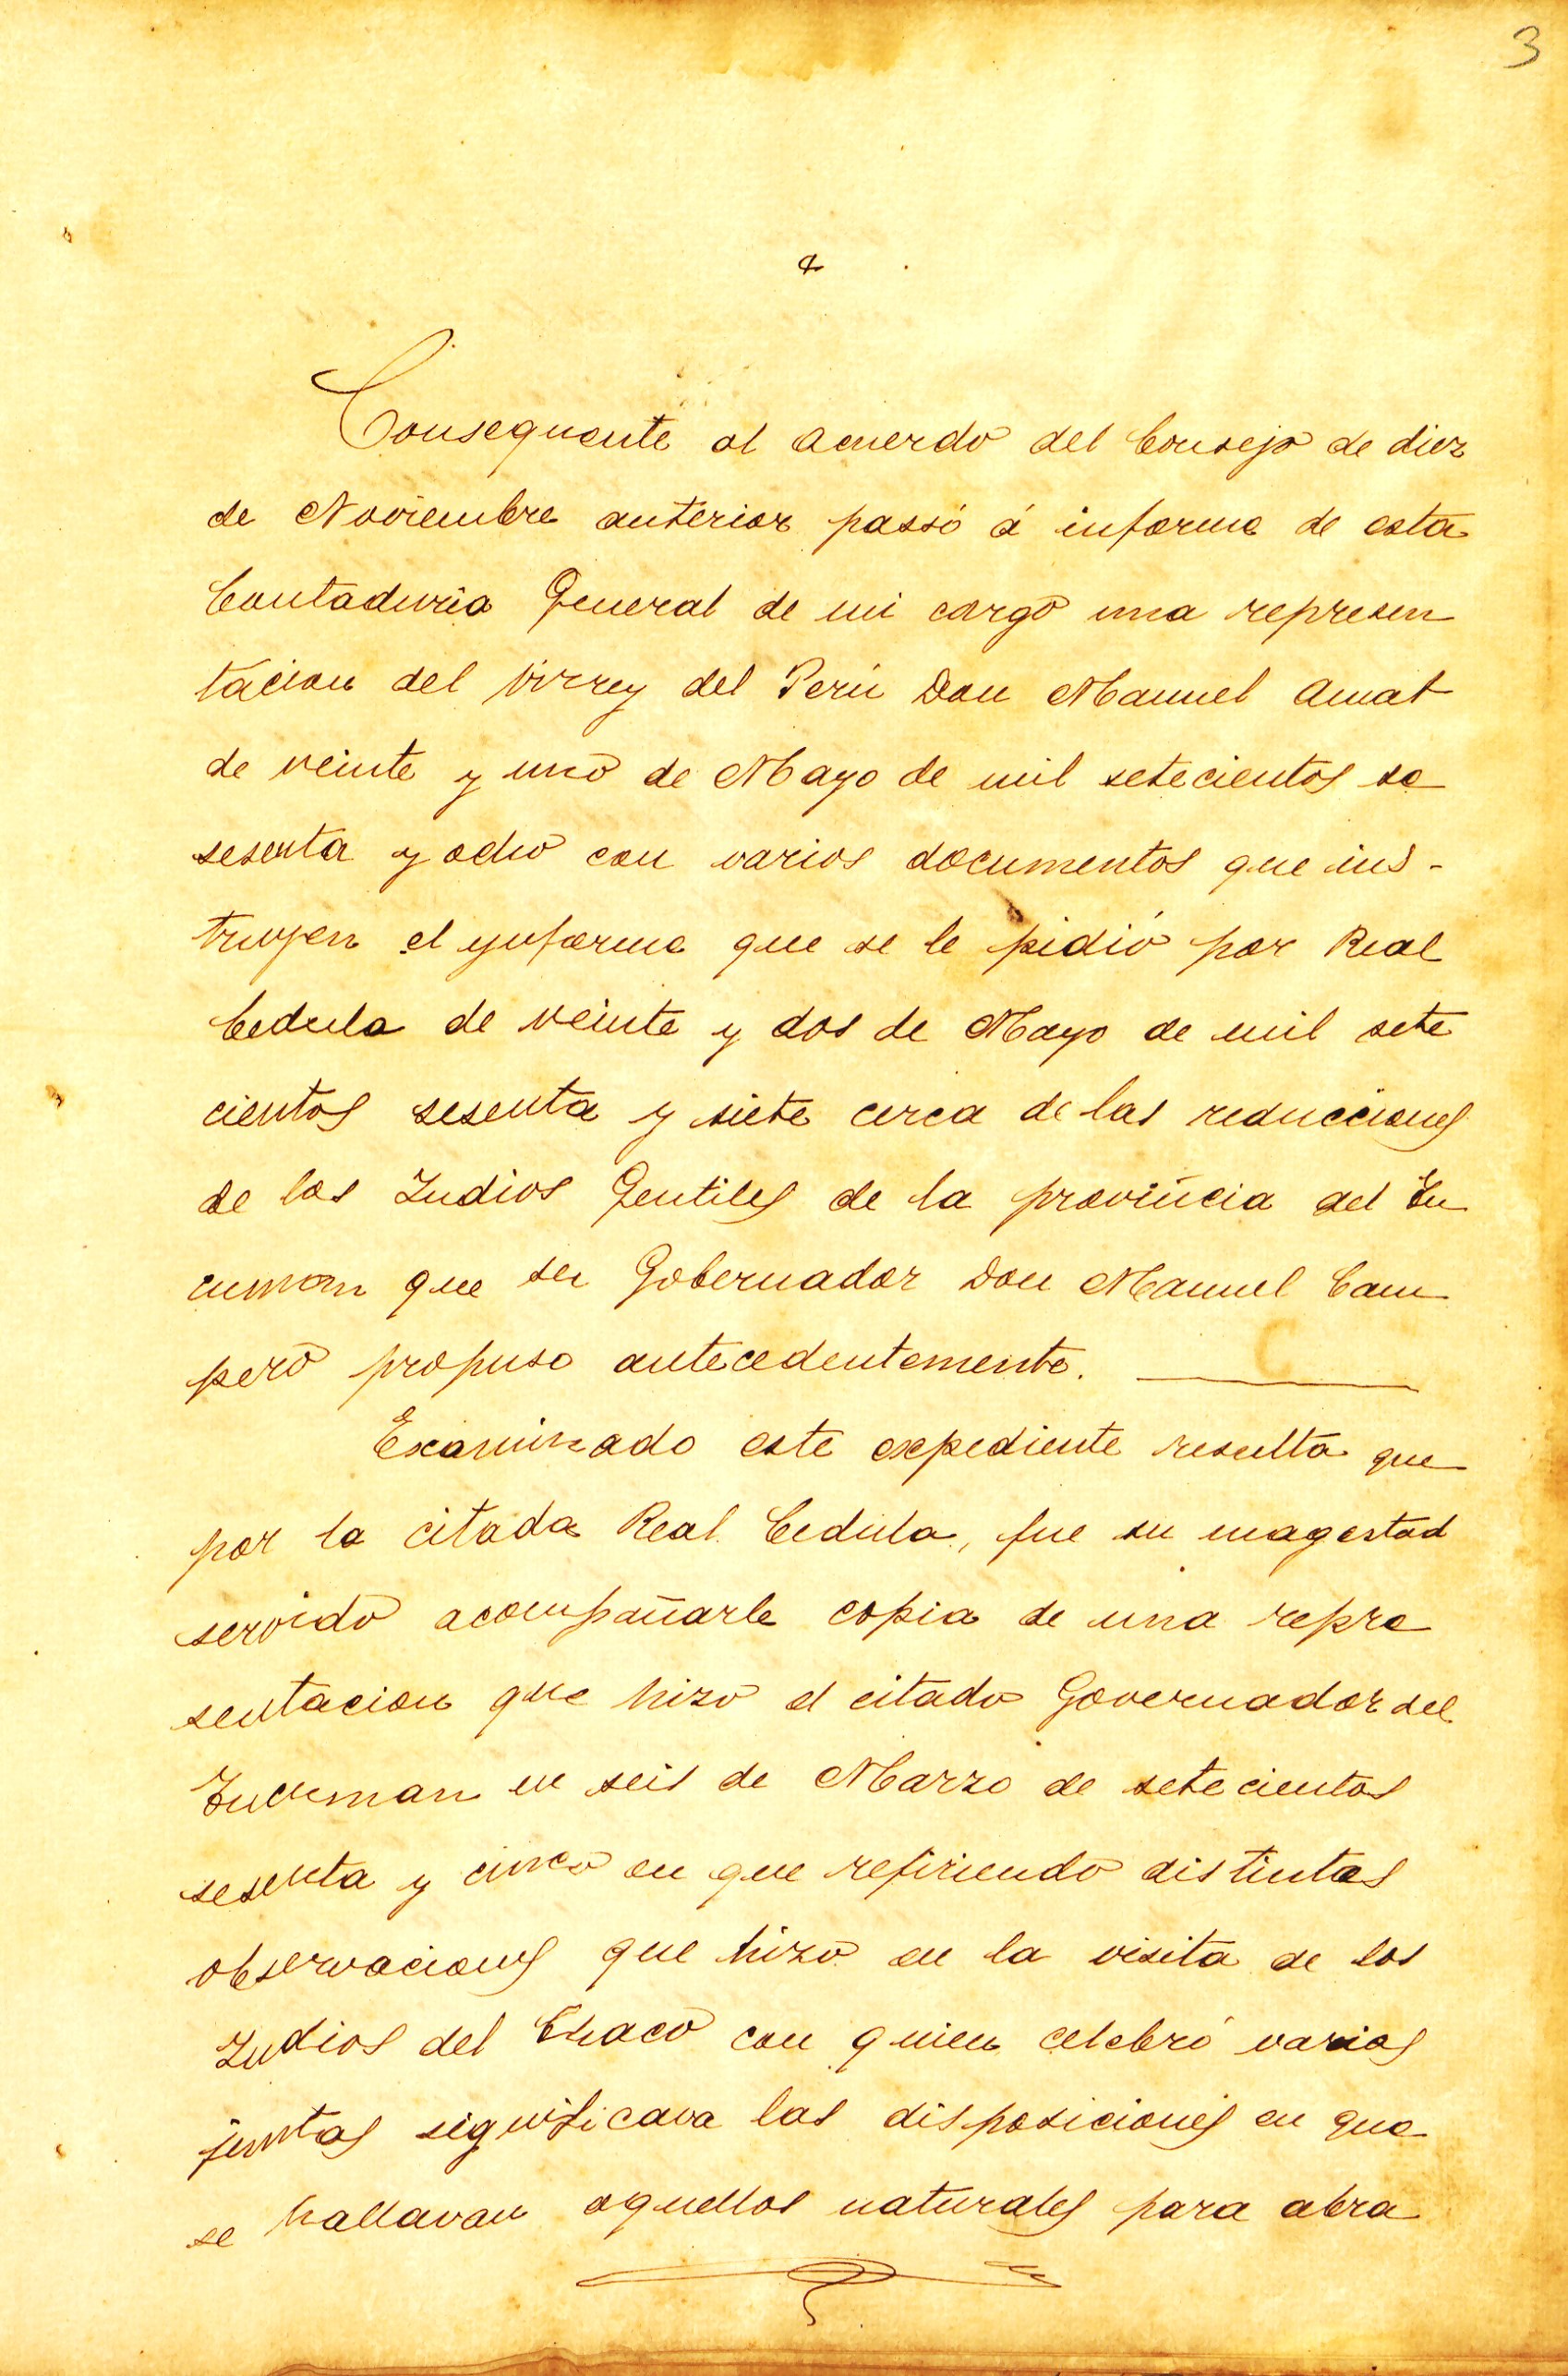 3
Consequente al acuerdo del Consejo de diez
de Noviembre anterior passó á informe de esta
Contaduria General de mi cargo una represen
tacion del Virrey del Perú Don Manuel Amat
de veinte y uno de Mayo de mil setecientos se
sesenta y ocho con varios documentos que ins-
truyen el ynforme que se le pidió por Real
Cedula de veinte y dos de Mayo de mil sete
cientos sesenta y siete cerca de las reducciones
de los Indios Gentiles de la provincia del Tu
cuman que su Gobernador Don Manuel Cam
pero propuso antecedentemente.
Examinado este expediente resulta que
por la citada Real Cedula, fue su magestad
servido acompañarle copia de una repre
sentacion que hizo el citado Governador del
Tucuman en seis de Marzo de setecientos
sesenta y cinco en que refiriendo distintas
observaciones que hizo en la visita de los
Indios del Chaco con quien celebró varias
juntas significava las disposiciones en que
se hallavan aquellos naturales para abra